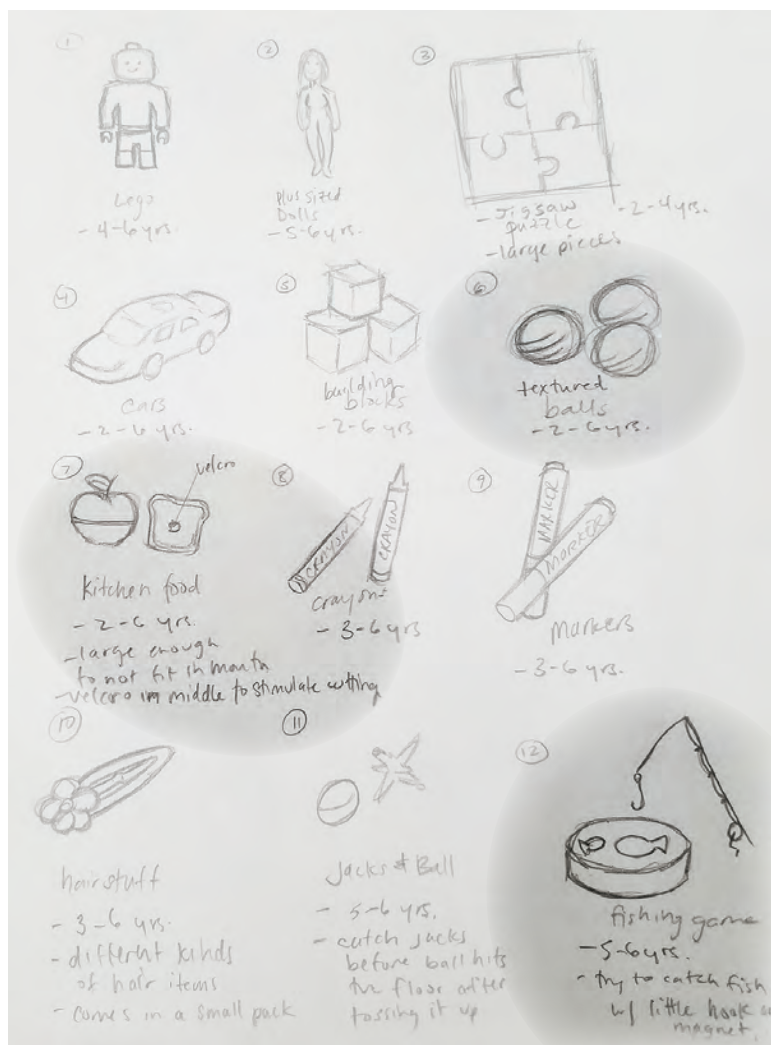 1
Lego
- 4-6 yrs.
2
plus sized
Dolls
- 5-6 yrs.
3
- Jigsaw
puzzle
- large pieces
- 2-4 yrs.
4
cars
- 2-6 yrs.
5
building
blocks
- 2-6 yrs
6
textured
balls
- 2-6 yrs.
7
velcro
Kitchen food
- 2-6 yrs.
- large enough
to not fit in mouth
- velcro in middle to stimulate cutting
8
CRAYON
CRAYON
crayons
- 3-6 yrs
9
MARKER
MARKER
Markers
- 3-6 yrs.
10
hair stuff
- 3-6 yrs.
- different kinds
of hair items
- comes in a small pack
11
Jacks & Ball
- 5-6 yrs.
- catch jacks
before ball hits
the floor after
tossing it up
12
fishing game
- 5-6 yrs.
- try to catch fish
w/ little hook
magnet.